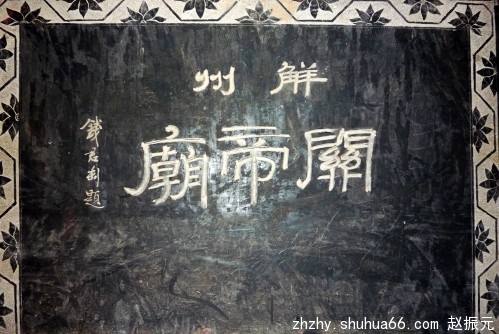 解州
關帝廟
zhzhy.shuhua66.com 赵振元